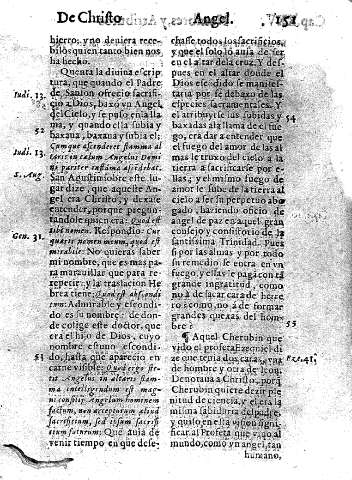 De Christo Angel. 151
hierro: y no deuiera rece-
bilos quien tanto bien nos
ha hecho.
Quenta la diuina escrip
tura, que quando el Padre
de Sanson ofrecio sacrifi-
cio a Dios, baxò vn Angel
del Cielo, y se puso en la lla
ma, y quando ella subia y
baxaua, baxaua y subia el:
Cumque ascenderet flamma al
taris in cælum Angelus Domi
ni pariter inflama ascẽdebat.
San Augustin sobre este lu-
gar dize, que aqueste An-
gel era Christo, y dexase
entender, porque pregun-
tandole quien era: Quod est
tibi nomen. Respondio: Cur
quæris nomen meum, quod est
mirabile: No quieras saber
mi nombre, que es mas pa-
ra marauillar que para re-
petir: y la traslacion He
brea tiene: Quod est abscondi
tum: Admirable y escondi-
do es su nombre: de don-
de colige este doctor, que
era el hijo de Dios, cuyo
nombre estuuo escondi-
do, hasta que aparecio en
carne visible: Quod ergo ste-
tit Angelus in altaris flam-
ma intelligendum est mag-
ni consilij Angelum hominem
factum, non accepturum aliud
sacrificium, sed ipsum sacrifi
cium futurum: Que auia de
venir tiempo en que dese-
Iudi. 13.
52
Iudi. 13.
S. Aug.
Gen. 31.
53
chasse todos los sacrificios,
y que el solo lo auia de ser
en el altar de la cruz. Y des-
pues en el altar donde el
Dios escõdido se manifes-
taria por se debaxo de las
especies sacramentales. Y
el atribuyrse las subidas y
baxadas a la llama de el fue
go, era dar a entender que
el fuego del amor de las al
mas le truxo del cielo a la
tierra a sacrificarse por e-
llas; y el mismo fuego de
amor le sube de la tierra al
cielo a ser su perpetuo abo
gado, haziendo oficio de
angel de paz en aquel gran
consejo y consistorio de la
santissima Trinidad. Pues
si por las almas y por todo
su remedio se entra en vn
fuego, y ellas le pagã con tã
grande ingratitud, como
no à de sacar cara de hier-
ro: como no à de formar
grandes quexas del hom-
bre?
¶ Aquel Cherubin que
vido el profeta Ezequiel di
ze que tenia dos caras, vna
de hombre y otra de leon.
Denotaua a Christo, porq̃
Cherubin quiere dezir ple
nitud de ciencia, y el era la
misma sabiduria del padre,
y quiso en esta vision signi-
ficar al Profeta que vino al
mundo, como vn angel, tan
humano,
54
55
Eze. 41.